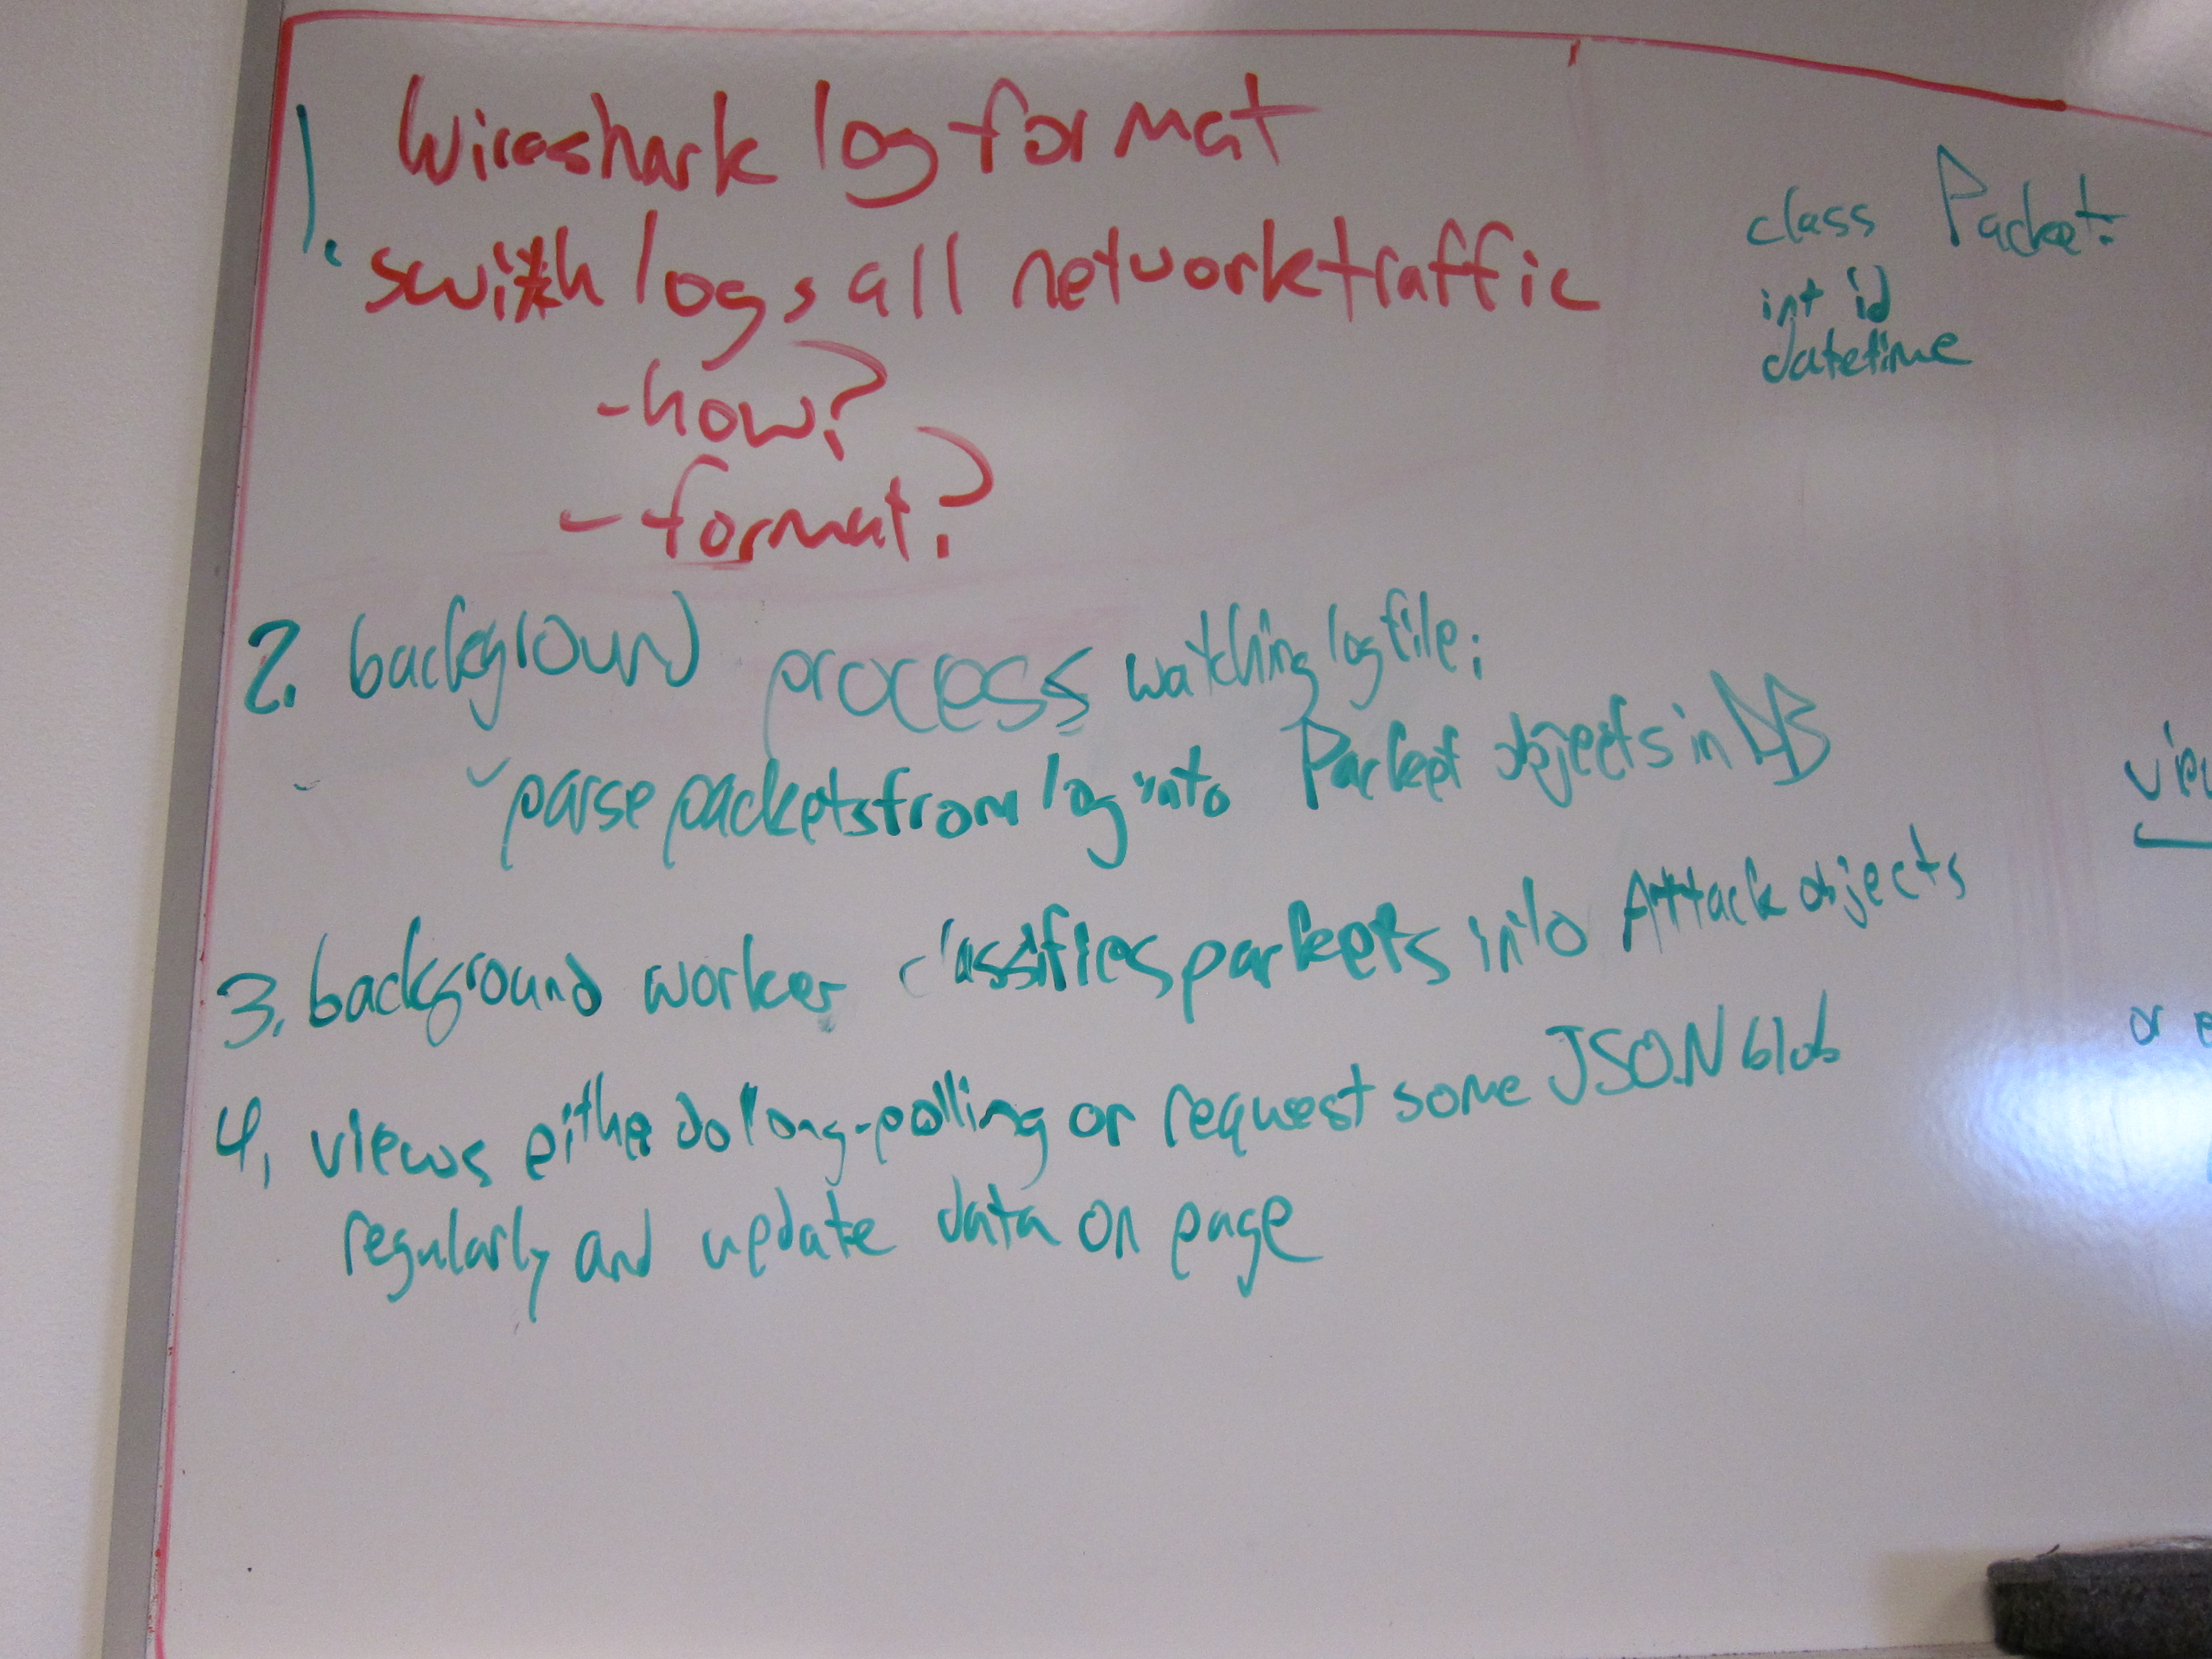 1. Wireshark log format
switch logs all network traffic
-how?
-format?
2. background process watching log file;
parse packets from log into Packet objects in DB
3. background worker classifies packets into Attack objects
4. views either do long-polling or request some JSON blob
regularly and update data on page
class Packet:
int id
datetime
or